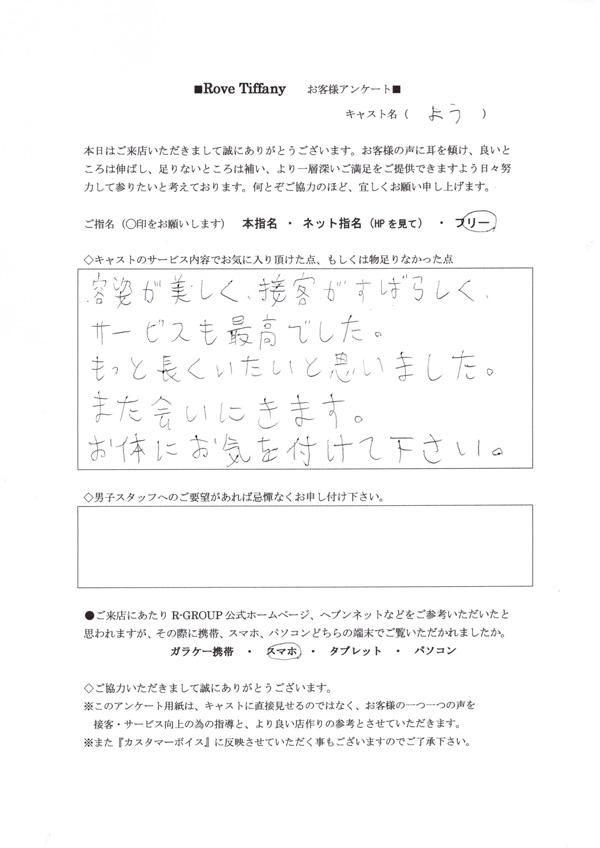 ■Rove Tiffany　お客様アンケート■
キャスト名（　よう　）
本日はご来店いただきまして誠にありがとうございます。お客様の声に耳を傾け、良いと
ころは伸ばし、足りないところは補い、より一層深いご満足をご提供できますよう日々努
力して参りたいと考えております。何とぞご協力のほど、宜しくお願い申し上げます。
ご指名（〇印をお願いします）　本指名　・　ネット指名（HPを見て）　・　フリー
◇キャストのサービス内容でお気に入り頂けた点、もしくは物足りなかった点
容姿が美しく、接客がすばらしく、
サービスも最高でした。
もっと長くいたいと思いました。
また会いにきます。
お体にお気を付けて下さい。
◇男子スタッフへのご要望があれば忌憚なくお申し付け下さい。
●ご来店にあたり R-GROUP 公式ホームページ、ヘブンネットなどをご参考いただいたと
思われますが、その際に携帯、スマホ、パソコンどちらの端末でご覧いただかれましたか。
ガラケー携帯　・　スマホ　・　タブレット　・　パソコン
◇ご協力いただきまして誠にありがとうございます。
※このアンケート用紙は、キャストに直接見せるのではなく、お客様の一つ一つの声を
接客・サービス向上の為の指導と、より良い店作りの参考とさせていただきます。
※また『カスタマーボイス』に反映させていただく事もございますのでご了承下さい。